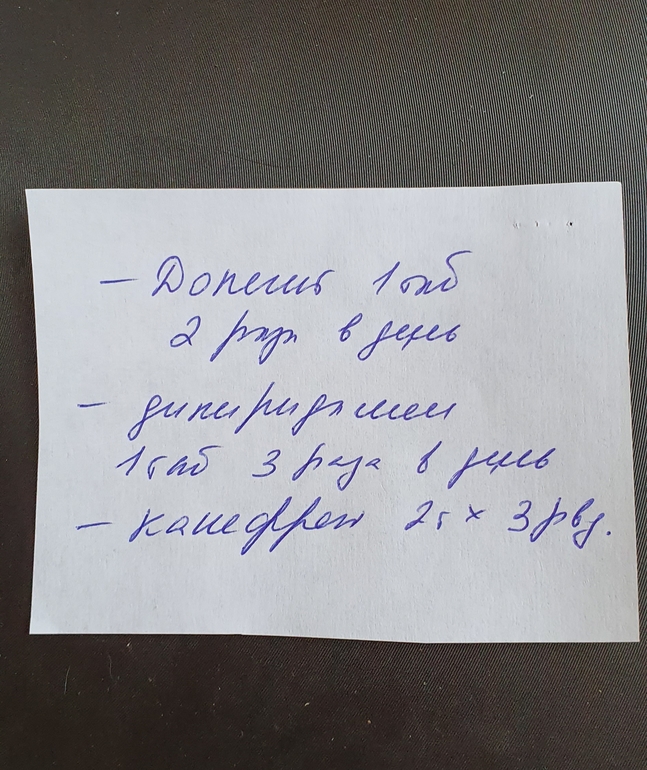 — Допегит 1 таб
2 раза в день
— дипиридамол
1 таб 3 раза в день
— канефрон 2т × 3 р в д.